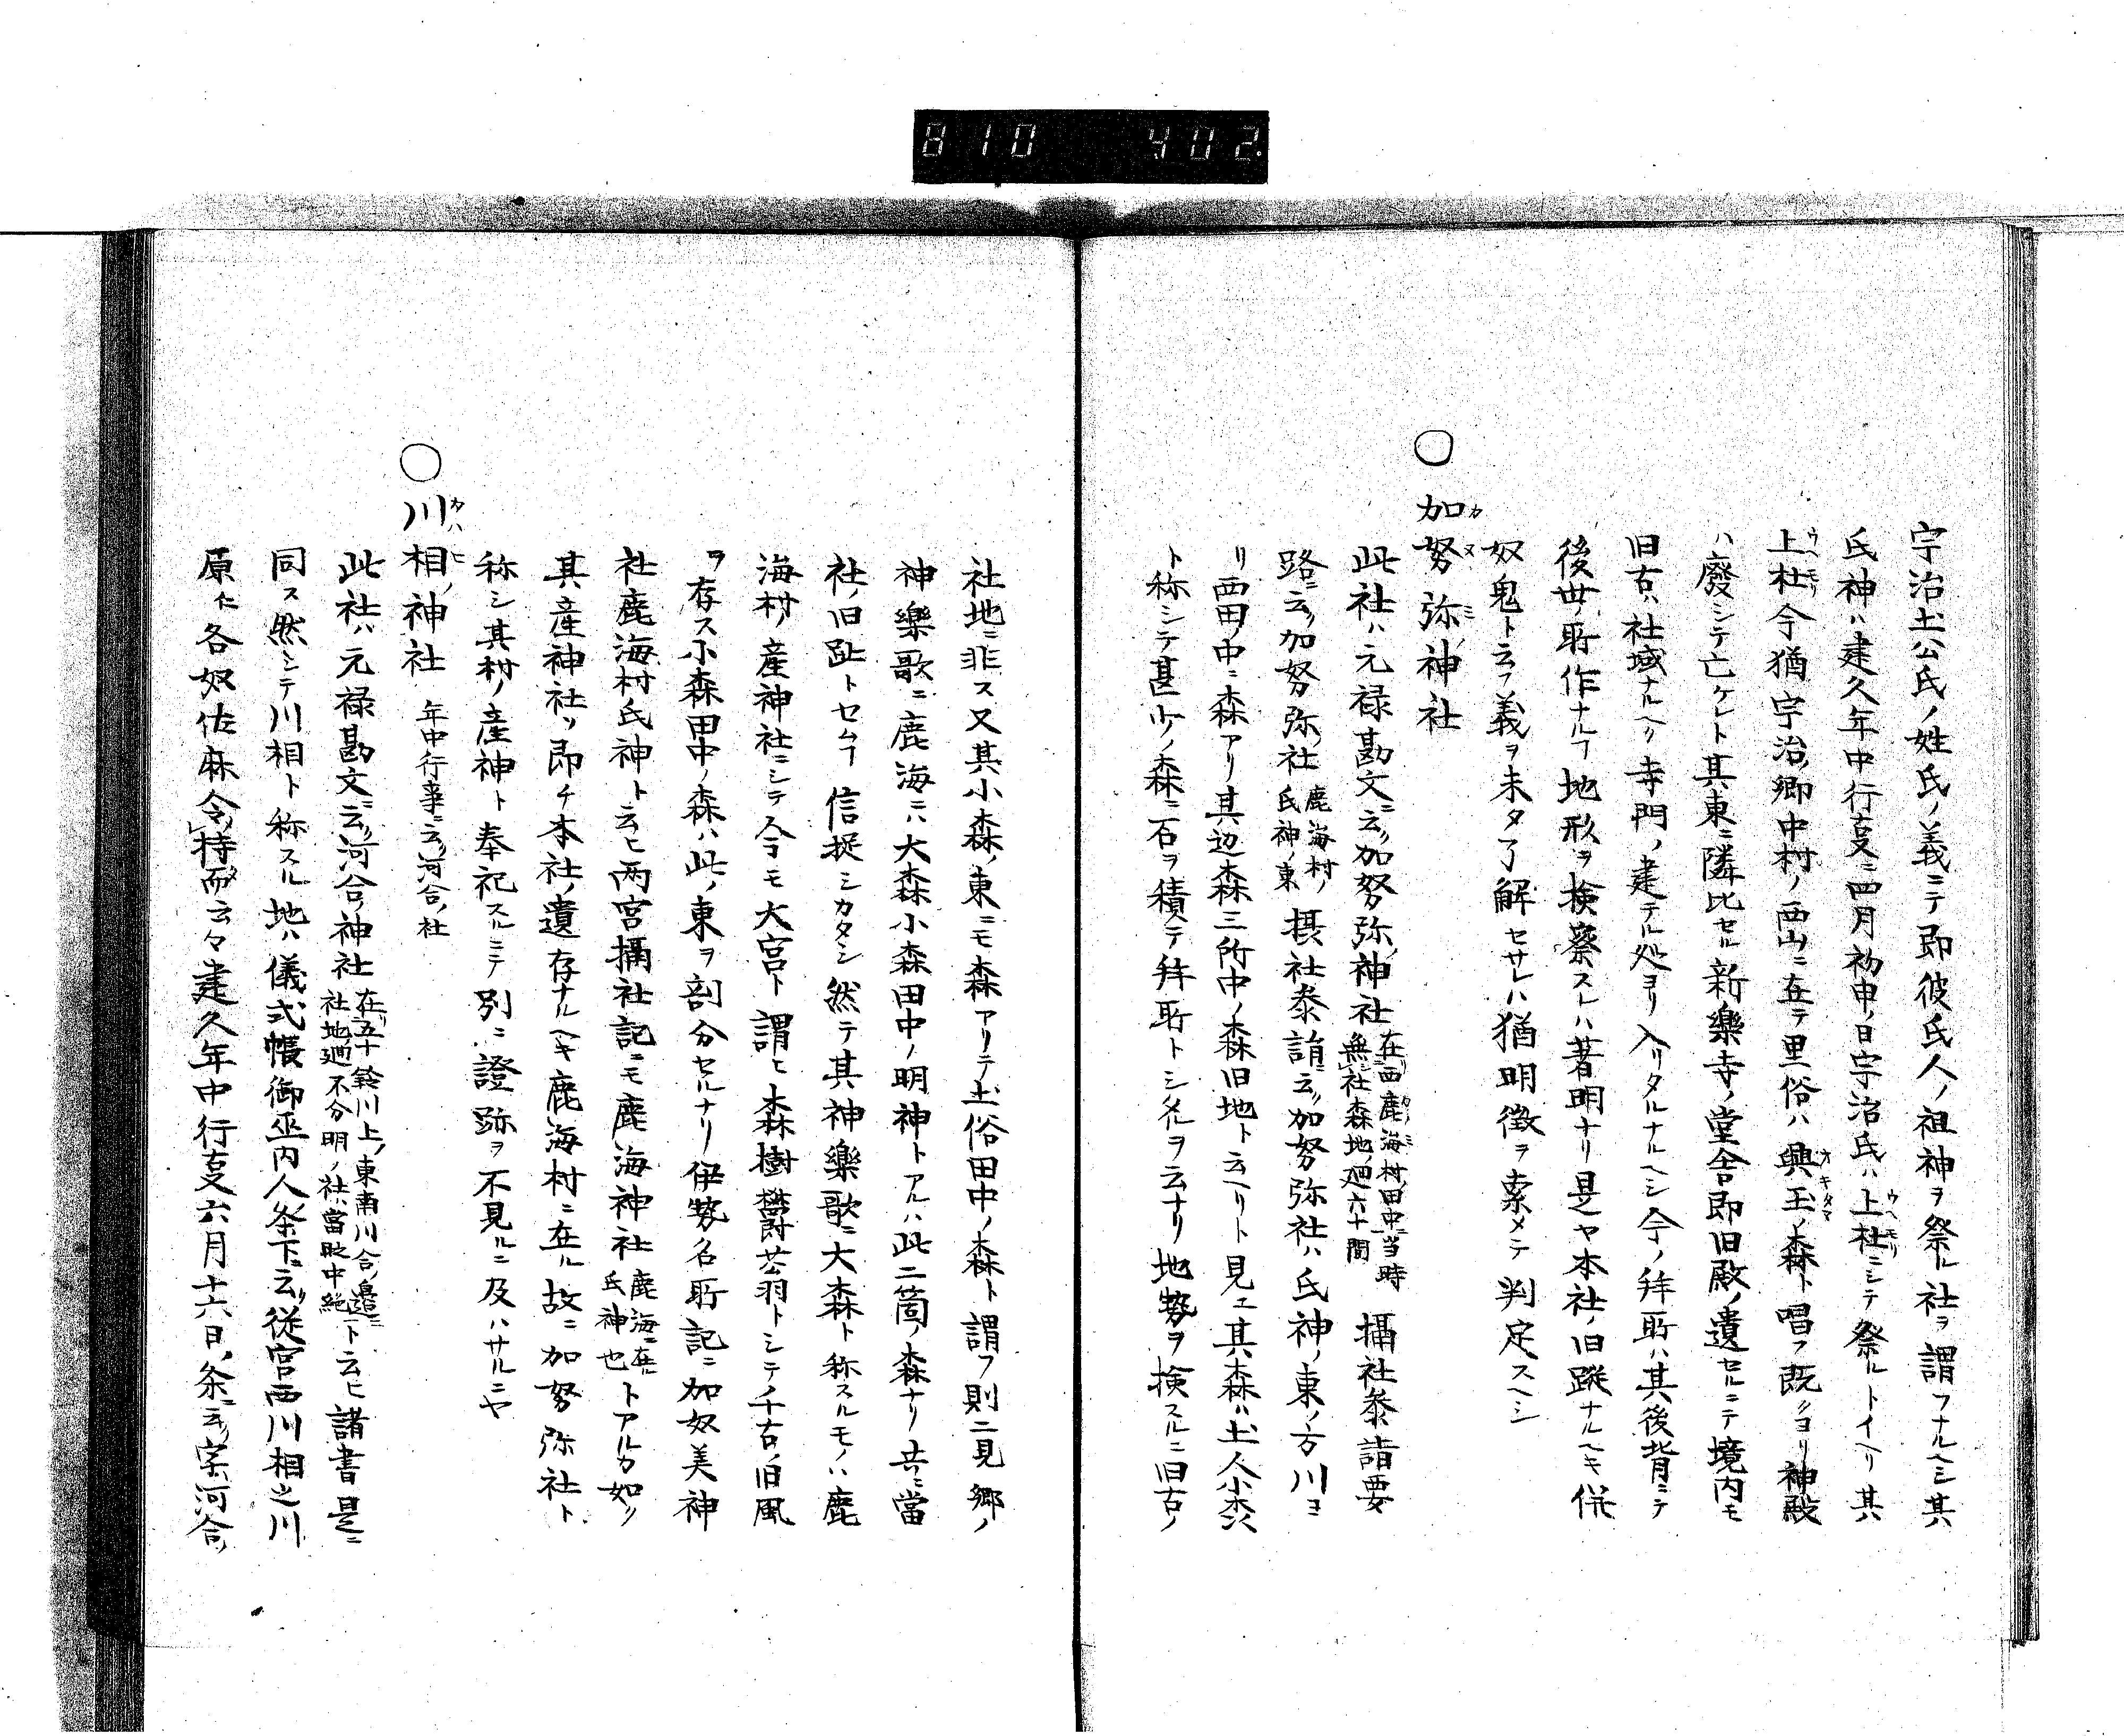 810 402
宇治土公氏ノ姓氏ノ義ニテ即彼氏人ノ祖神ヲ祭ル社ヲ謂フナルヘシ其
氏神ハ建久年中行㕝ニ四月初申ノ日宇治氏ハ上社ニシテ祭ルトイヘリ其
上社今猶宇治ノ郷中村ノ西山ニ在テ里俗ハ興玉ノ森ト唱フ既クヨリ神殿
ハ廢シテ亡ケレト其東ニ隣比セル新樂寺ノ堂舎即旧殿ノ遺セルニテ境内モ
旧古ハ社域ナルヘク寺門ノ建テル処ヨリ入リタルナルヘシ今ノ拜所ハ其後背ニテ
後世ノ所作ナルヿ地形ヲ検察スレハ著明ナリ是ヤ本社ノ旧蹤ナルヘキ併
奴鬼ト云フ義ヲ未タ了解セサレハ猶明徴ヲ索メテ判定スヘシ
○加努弥神社
此社ハ元禄勘文ニ云ク加努弥ノ神社在西鹿海村ノ田中ニ当時無社森地ノ廻六十間攝社参詣要
路ニ云ク加努弥ノ社鹿海村ノ氏神ノ東摂社参詣ニ云ク加努弥社ハ氏神ノ東ノ方川ヨ
リ西田ノ中ニ森アリ其辺森三所中ノ森旧地ト云ヘリト見エ其森ハ土人小森
ト称シテ甚少ノ森ニ石ヲ積テ拜所トシタルヲ云ナリ地勢ヲ検スルニ旧古ノ
社地ニ非ス又其小森ノ東ニモ森アリテ土俗田中ノ森ト謂フ則二見郷ノ
神樂歌ニ鹿海ニハ大森小森田中ノ明神トアルハ此二箇ノ森ナリ共ニ當
社ノ旧趾トセムヿ信挺シカタシ然テ其神樂歌ニ大森ト称スルモノハ鹿
海村ノ産神社ニシテ今モ大宮ト謂ヒ森樹欝蓊トシテ千古ノ旧風
ヲ存ス小森田中ノ森ハ此ノ東ヲ剖分セルナリ伊勢名所記ニ加奴美神
社鹿海村氏神ト云ヒ両宮攝社記ニモ鹿海神社鹿海ニ在ル氏神也トアルカ如ク
其産神社ソ即チ本社ノ遺存ナルヘキ鹿海村ニ在ル故ニ加努弥社ト
称シ其村ノ産神ト奉祀スルニテ別ニ證跡ヲ不見ルニ及ハサルニヤ
○川相ノ神社 年中行事ニ云ク河合ノ社
此社ハ元禄勘文ニ云ク河合ノ神社在五十鈴川上ノ東南川合ノ邊ニ社地ノ廻不分明ノ社當時中絶ト云ヒ諸書是ニ
同ス然シテ川相ト称スル地ハ儀式帳御巫内人条下ニ云ク従宮西川相之川
原ニ各奴佐麻令持而云々建久年中行㕝六月十六日ノ条ニ云ク字河合ノ